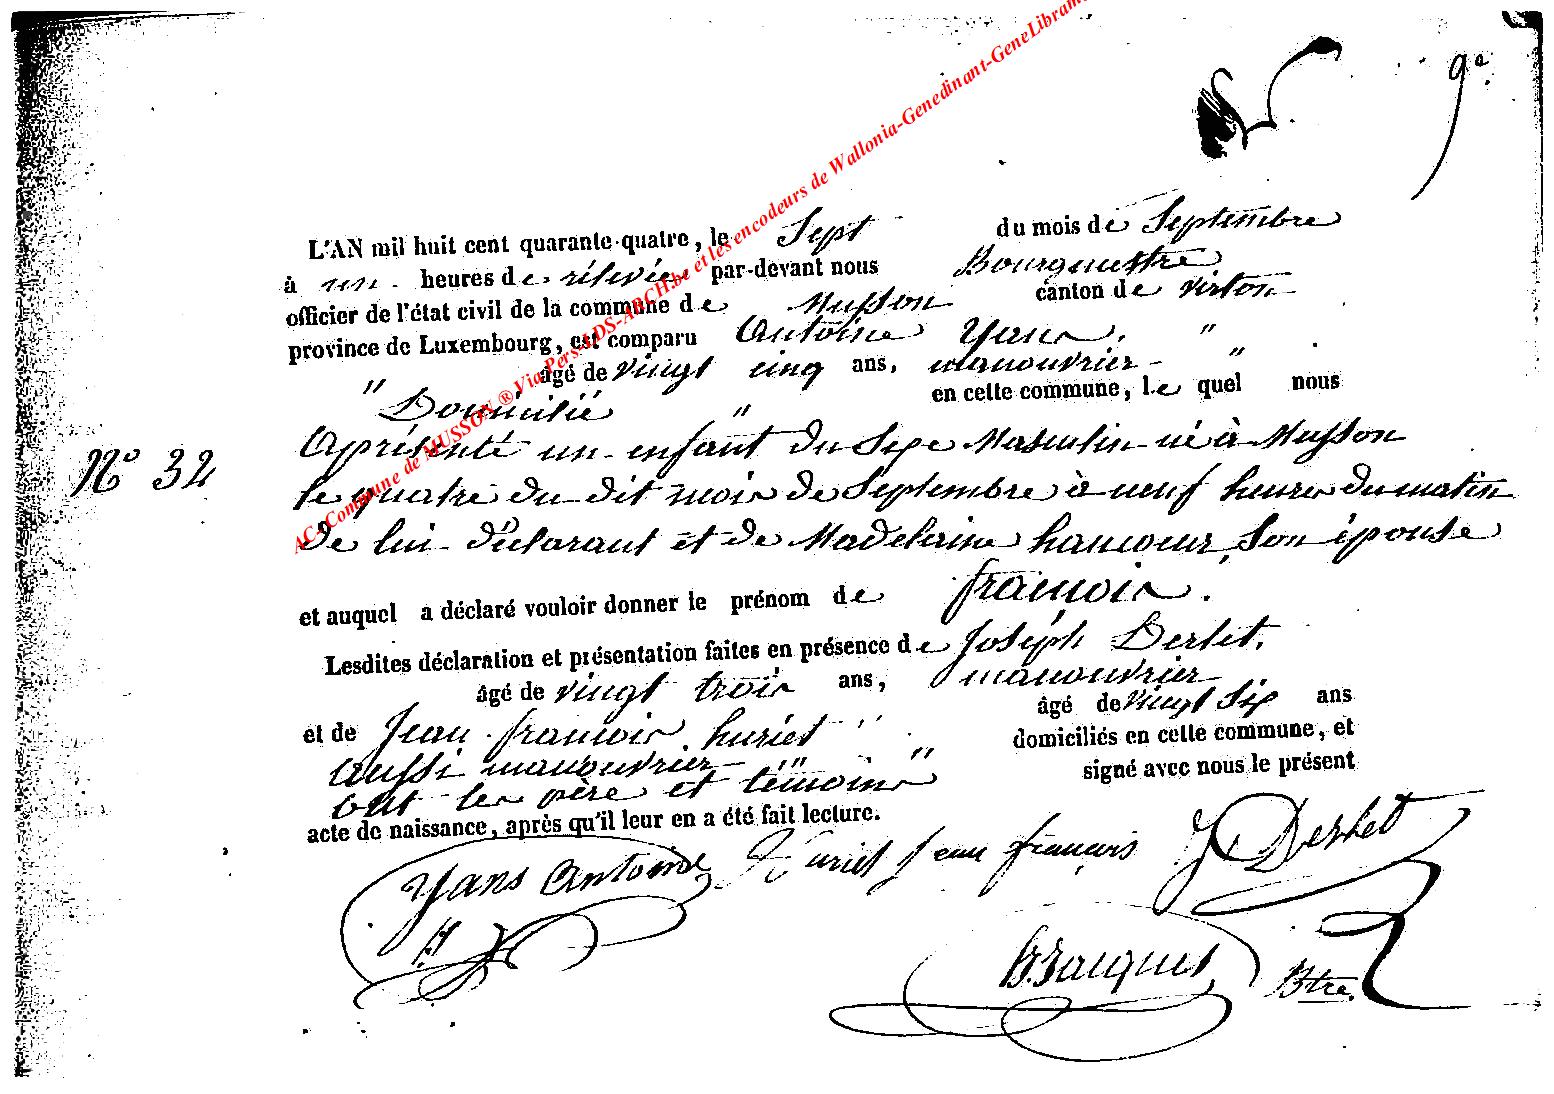 9e.
L'AN mil huit cent quarante-quatre, le Sept du mois de Septembre
à un heures de rélevée par-devant nous Bourgmestre
officier de l'état civil de la commune de Musson canton de Virton
province de Luxembourg, est comparu Antoine Yans. "
" âgé de vingt cinq ans, manouvrier "
Domicilié " en cette commune, le quel nous
Aprésenté un enfant du Sexe Masculin né à Musson
N° 32
le quatre du dit mois de Septembre à neuf heures du matin
de lui déclarant et de Madelaine hancoeur, Son épouse
et auquel a déclaré vouloir donner le prénom de françois.
Lesdites déclaration et présentation faites en présence de Joseph Derlet,
âgé de vingt trois ans, manouvrier
et de Jean françois huriet " âgé de vingt Six ans
aussi manouvrier " domiciliés en cette commune, et
ont les père et témoins " signé avec nous le présent
acte de naissance, après qu'il leur en a été fait lecture.
Yans Antoine Huriet Jean françois J Derlet
Jacques Btre.
AC - Commune de MUSSON ® Via Pers-LDS-ARCH.be et les encodeurs de Wallonia-Genedinant-GeneLibram